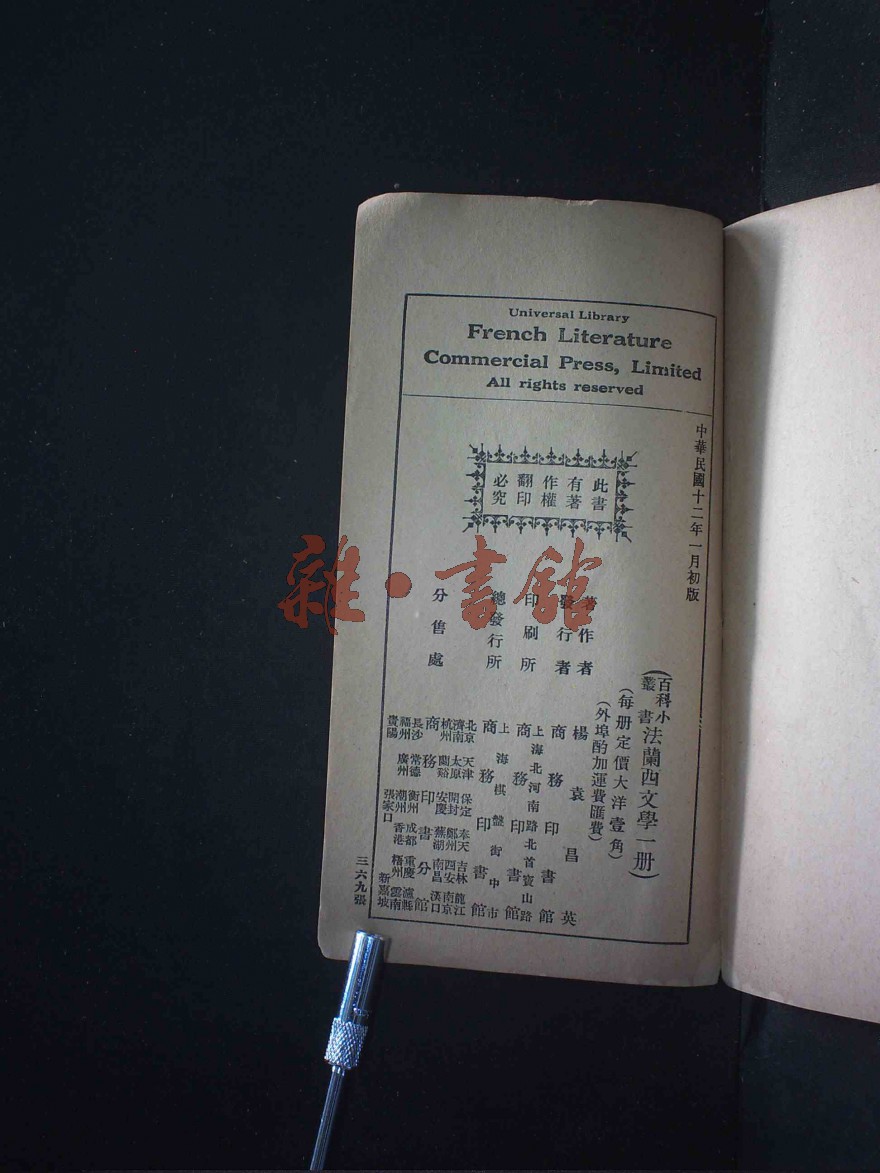 Universal Library
French Literature
Commercial Press, Limited
All rights reserved
中華民國十二年一月初版
此書
有著
作權
翻印
必究
(百科小叢書)法蘭西文學一册)
(每册定價大洋壹角)
(外埠酌加運費匯費)
著作者 楊袁昌英
發行者 商務印書館
印刷所 上海北河南路北首寶山路 商務印書館
總發行所 上海棋盤街中市 商務印書館
分售處 商務印書分館
北京 天津 保定 奉天 吉林 龍江
濟南 太原 開封 鄭州 西安 南京
杭州 蘭谿 安慶 蕪湖 南昌 漢口
長沙 常德 衡州 成都 重慶 瀘縣
福州 廣州 潮州 香港 梧州 雲南
貴陽 張家口 新嘉坡
三六九張
雜·書館